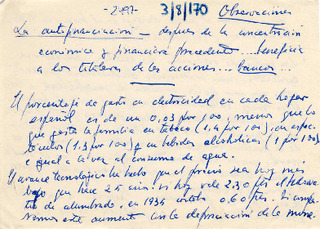 - 2997- 3/8/170 Observaciones
La autofinanciación — despues de la concentración
económica y financiera precedente ... beneficia
a los titulares de las acciones ... bancos ...
El porcentaje de gasto en electricidad en cada hogar
español es de un 0,03 por 100, menos que lo
que gasta la familia en tabaco (1,4 por 100), en espec-
táculos (1,3 por 100) y en bebidas alcohólicas (1 por 100)
e igual a la vez al consumo de agua.
El avance tecnológico ha hecho que el precio sea hoy más
bajo que hace 25 años; hoy vale 2,30 pts el kilowa-
tio de alumbrado, en 1936 costaba 0,60 ptas. Si compa-
ramos este aumento con la depreciación de la mone-